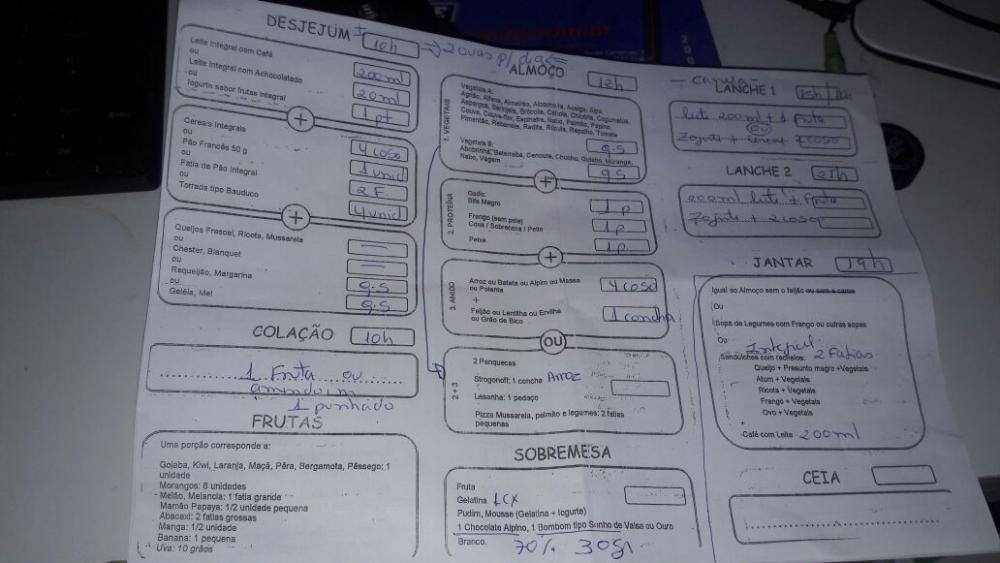 DESJEJUM 10h
→ 2 ovos p/ dia
Leite Integral com Café 200ml
ou
Leite Integral com Achocolatado 20ml
ou
Iogurte sabor frutas integral 1 pt
+
Cereais Integrais 4 coso
ou
Pão Francês 50 g 1 unid
ou
Fatia de Pão Integral 2 F.
ou
Torrada tipo Bauduco 4 unid
+
Queijos Frescal, Ricota, Mussarela
ou
Chester, Blanquet
ou
Requeijão, Margarina q.s
ou
Geléia, Mel q.s
COLAÇÃO 10h
1 Fruta ou
amendoim
1 punhado
FRUTAS
Uma porção corresponde a:
Goiaba, Kiwi, Laranja, Maçã, Pêra, Bergamota, Pêssego: 1
unidade
Morangos: 8 unidades
Melão, Melancia: 1 fatia grande
Mamão Papaya: 1/2 unidade pequena
Abacaxi: 2 fatias grossas
Manga: 1/2 unidade
Banana: 1 pequena
Uva: 10 grãos
ALMOÇO 12h
1. VEGETAIS
Vegetais A:
Agrião, Alface, Almeirão, Alcachofra, Acelga, Aipo,
Aspargos, Berinjela, Brócolis, Cebola, Chicória, Cogumelos,
Couve, Couve-flor, Espinafre, Nabo, Palmito, Pepino,
Pimentão, Rabanete, Radite, Rúcula, Repolho, Tomate
q.s
Vegetais B:
Abobrinha, Beterraba, Cenoura, Chuchu, Quiabo, Moranga,
Nabo, Vagem q.s
+
2. PROTEÍNA
Gado:
Bife Magro 1 p
Frango (sem pele)
Coxa / Sobrecoxa / Peito 1 p
Peixe 1 p
+
3. AMIDO
Arroz ou Batata ou Aipim ou Massa
ou Polenta 4 coso
+
Feijão ou Lentilha ou Ervilha
ou Grão de Bico 1 concha
OU
2 + 3
2 Panquecas
Strogonoff: 1 concha Arroz
Lasanha: 1 pedaço
Pizza Mussarela, palmito e legumes: 2 fatias
pequenas
SOBREMESA
Fruta
Gelatina LCX
Pudim, Mousse (Gelatina + Iogurte)
1 Chocolate Alpino, 1 Bombom tipo Sonho de Valsa ou Ouro
Branco. 70% 30gr
LANCHE 1
leite 200ml + 1 fruta
ou
LANCHE 2 21h
200ml leite + fruta
JANTAR 19h
Igual ao Almoço sem o feijão ou sem a carne
Ou
Sopa de Legumes com Frango ou outras sopas
Ou Integral
Sanduíches com recheios: 2 Fatias
Queijo + Presunto magro +Vegetais
Atum + Vegetais
Ricota + Vegetais
Frango + Vegetais
Ovo + Vegetais
+
Café com Leite 200ml
CEIA